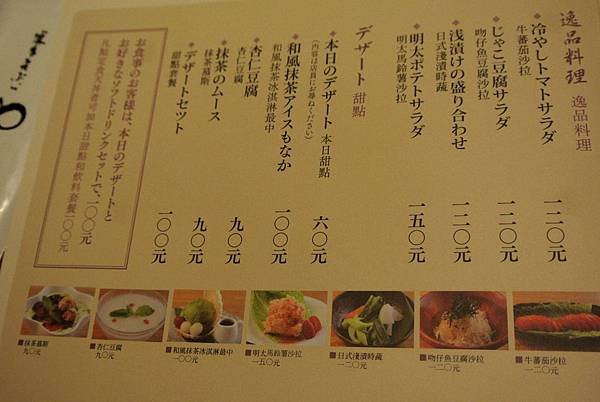 逸品料理 逸品料理
冷やしトマトサラダ 一二〇元
牛蕃茄沙拉
じゃこ豆腐サラダ 一二〇元
吻仔魚豆腐沙拉
浅漬けの盛り合わせ 一二〇元
日式淺漬時蔬
明太ポテトサラダ 一五〇元
明太馬鈴薯沙拉
デザート 甜點
本日のデザート 本日甜點 六〇元
(内容は店員にお尋ねください)
和風抹茶アイスもなか 一〇〇元
和風抹茶冰淇淋最中
杏仁豆腐 九〇元
杏仁豆腐
抹茶のムース 九〇元
抹茶慕斯
デザートセット 一〇〇元
甜點套餐
お食事のお客様は、本日のデザートと
お好きなソフトドリンクセットで、一〇〇元
凡點定食、丼者可加本日甜點和飲料套餐一〇〇元
■抹茶慕斯
九〇元
■杏仁豆腐
九〇元
■和風抹茶冰淇淋最中
一〇〇元
■明太馬鈴薯沙拉
一五〇元
■日式淺漬時蔬
一二〇元
■吻仔魚豆腐沙拉
一二〇元
■牛蕃茄沙拉
一二〇元